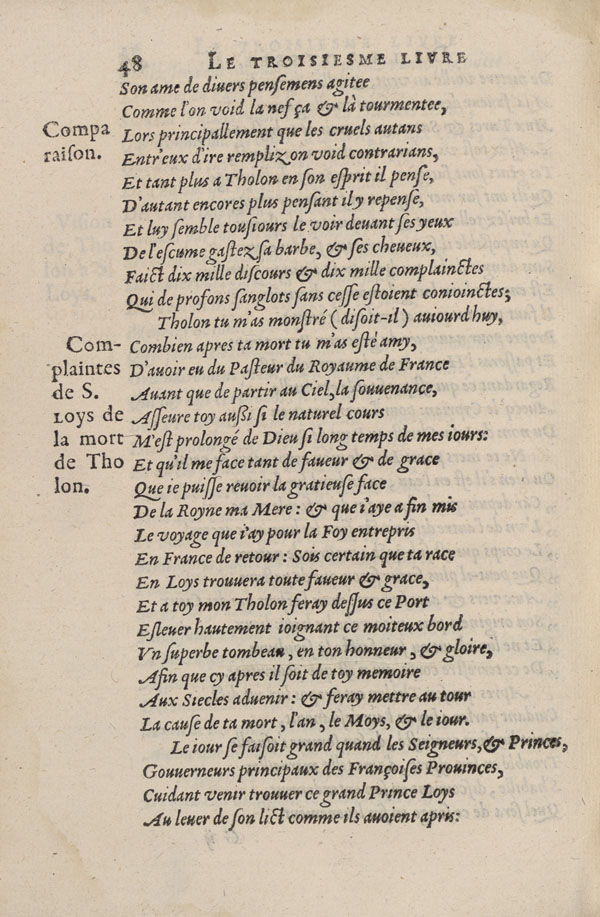 48 LE TROISIESME LIVRE
Son ame de divers pensemens agitee
Comme l'on void la nef ça & là tourmentee,
Compa
raison.
Lors principallement que les cruels autans
Entr'eux d'ire rempliz on void contrarians,
Et tant plus a Tholon en son esprit il pense,
D'autant encores plus pensant il y repense,
Et luy semble tousiours le voir devant ses yeux
De l'escume gastez sa barbe, & ses cheveux,
Faict dix mille discours & dix mille complainctes
Qui de profons sanglots sans cesse estoient conioinctes;
Tholon tu m'as monstré (disoit-il) auiourd'huy,
Com-
plaintes
de S.
Loys de
la mort
de Tho
lon.
Combien apres ta mort tu m'as esté amy,
D'avoir eu du Pasteur du Royaume de France
Avant que de partir au Ciel, la souvenance,
Asseure toy aussi si le naturel cours
M'est prolongé de Dieu si long temps de mes iours:
Et qu'il me face tant de faveur & de grace
Que ie puisse revoir la gratieuse face
De la Royne ma Mere: & que i'aye a fin mis
Le voyage que i'ay pour la Foy entrepris
En France de retour: Sois certain que ta race
En Loys trouvera toute faveur & grace,
Et a toy mon Tholon feray dessus ce Port
Eslever hautement ioignant ce moiteux bord
Vn superbe tombeau, en ton honneur, & gloire,
Afin que cy apres il soit de toy memoire
Aux Siecles advenir: & feray mettre au tour
La cause de ta mort, l'an, le Moys, & le iour.
Le iour se faisoit grand quand les Seigneurs, & Princes,
Gouverneurs principaux des Françoises Provinces,
Cuidant venir trouver ce grand Prince Loys
Au lever de son lict comme ils avoient apris: